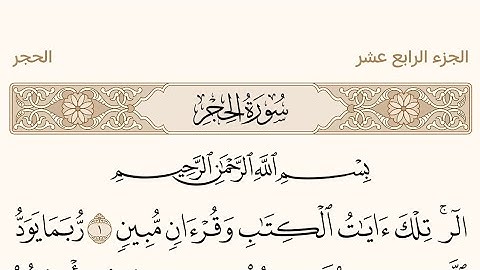 الجزء الرابع عشر
الحجر
سُورَةُ الحِجْرِ
بِسْمِ اللَّهِ الرَّحْمَٰنِ الرَّحِيمِ
الٓرۚ تِلْكَ ءَايَٰتُ ٱلْكِتَٰبِ وَقُرْءَانٖ مُّبِينٖ ١ رُّبَمَا يَوَدُّ